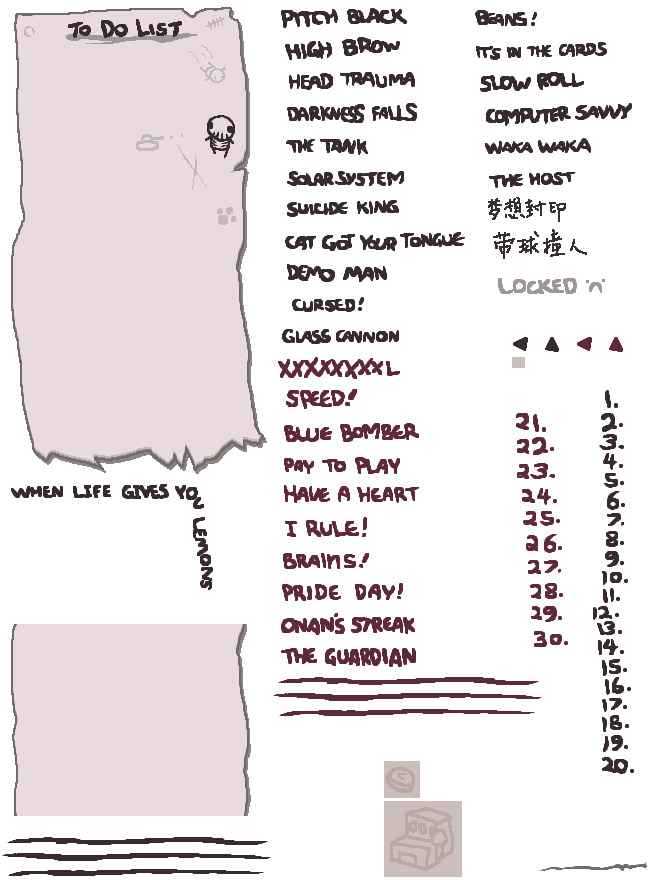 TO DO LIST
WHEN LIFE GIVES YOU LEMONS
PITCH BLACK
HIGH BROW
HEAD TRAUMA
DARKNESS FALLS
THE TANK
SOLAR SYSTEM
SUICIDE KING
CAT GOT YOUR TONGUE
DEMO MAN
CURSED!
GLASS CANNON
XXXXXXXXL
SPEED!
BLUE BOMBER
PAY TO PLAY
HAVE A HEART
I RULE!
BRAINS!
PRIDE DAY!
ONAN'S STREAK
THE GUARDIAN
BEANS!
IT'S IN THE CARDS
SLOW ROLL
COMPUTER SAVVY
WAKA WAKA
THE HOST
梦想封印
带球撞人
LOCKED :'(
21.
22.
23.
24.
25.
26.
27.
28.
29.
30.
1.
2.
3.
4.
5.
6.
7.
8.
9.
10.
11.
12.
13.
14.
15.
16.
17.
18.
19.
20.